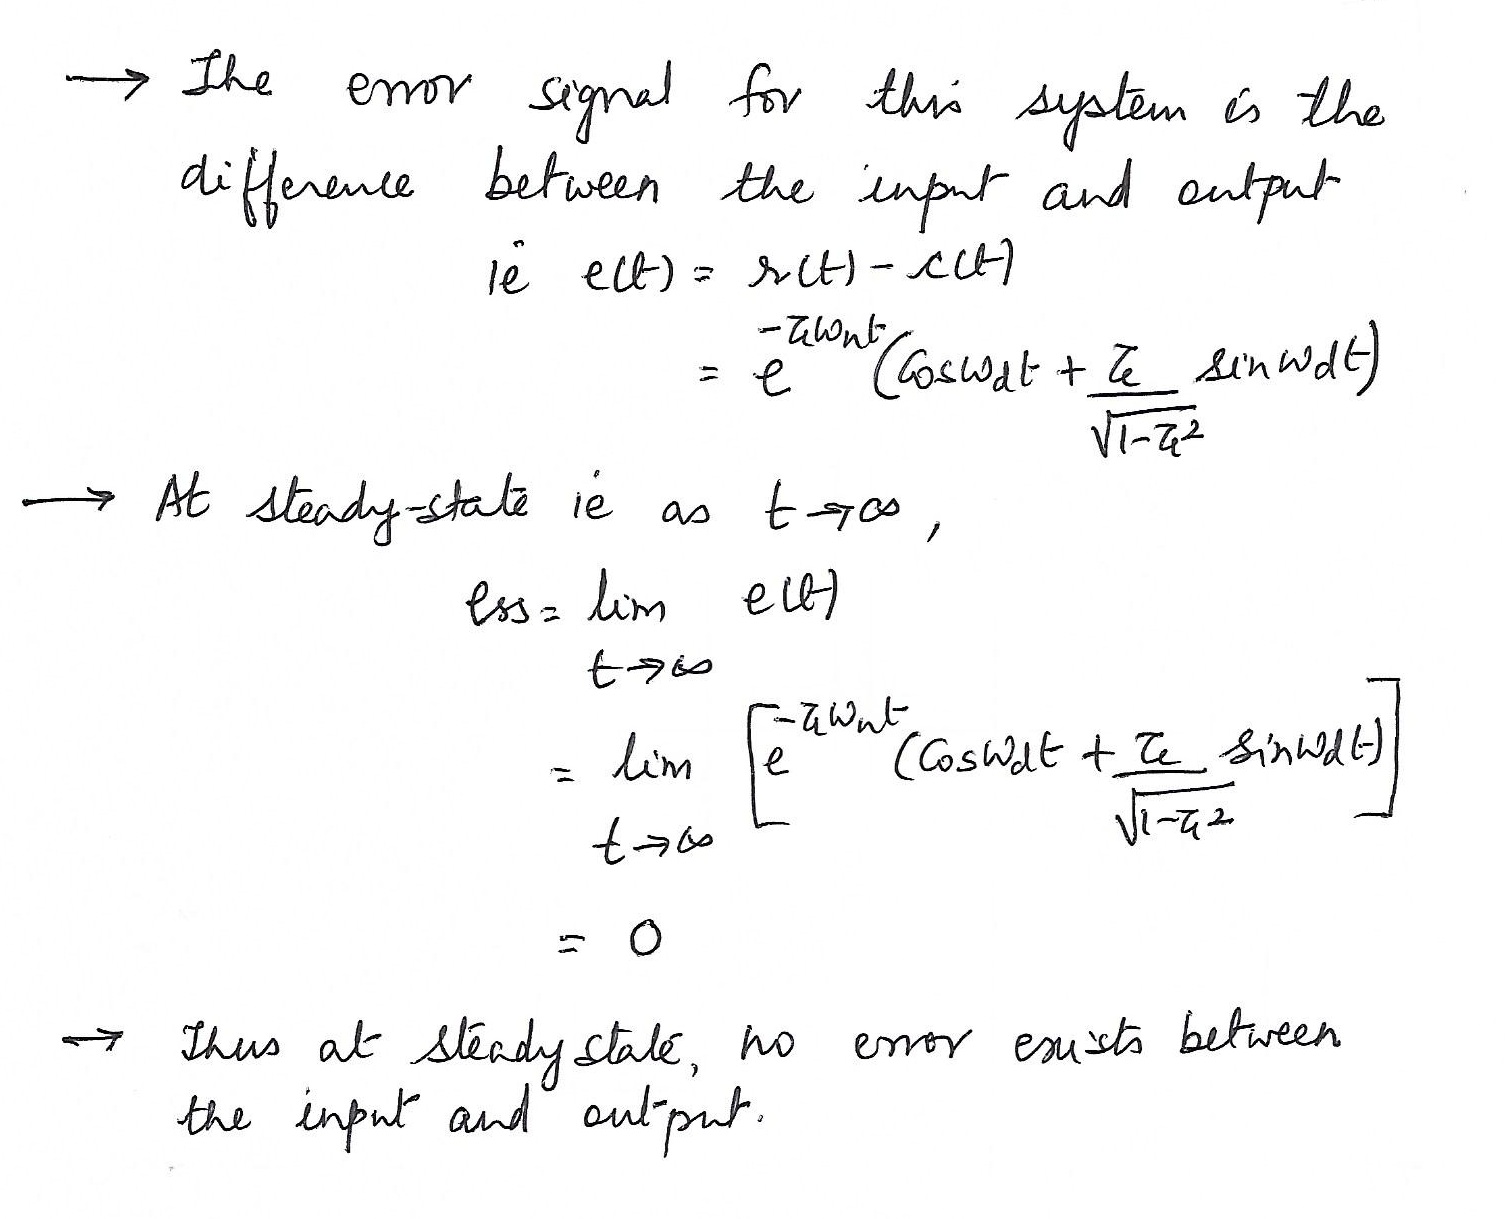 → The error signal for this system is the
difference between the input and output
ie e(t) = r(t) - c(t)
= e^{-ζωnt} (Cosωdt + ζ/√1-ζ² sinωdt)
→ At steady-state ie as t→∞,
ess = lim e(t)
t→∞
= lim [e^{-ζωnt} (Cosωdt + ζ/√1-ζ² sinωdt)]
t→∞
= 0
→ Thus at steady state, no error exists between
the input and output.